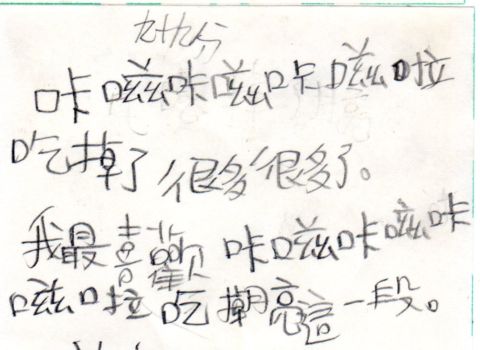 九十九分
咔嗞咔嗞咔嗞啦
吃掉了很多很多了。
我最喜歡咔嗞咔嗞咔
嗞啦吃掉月亮這一段。